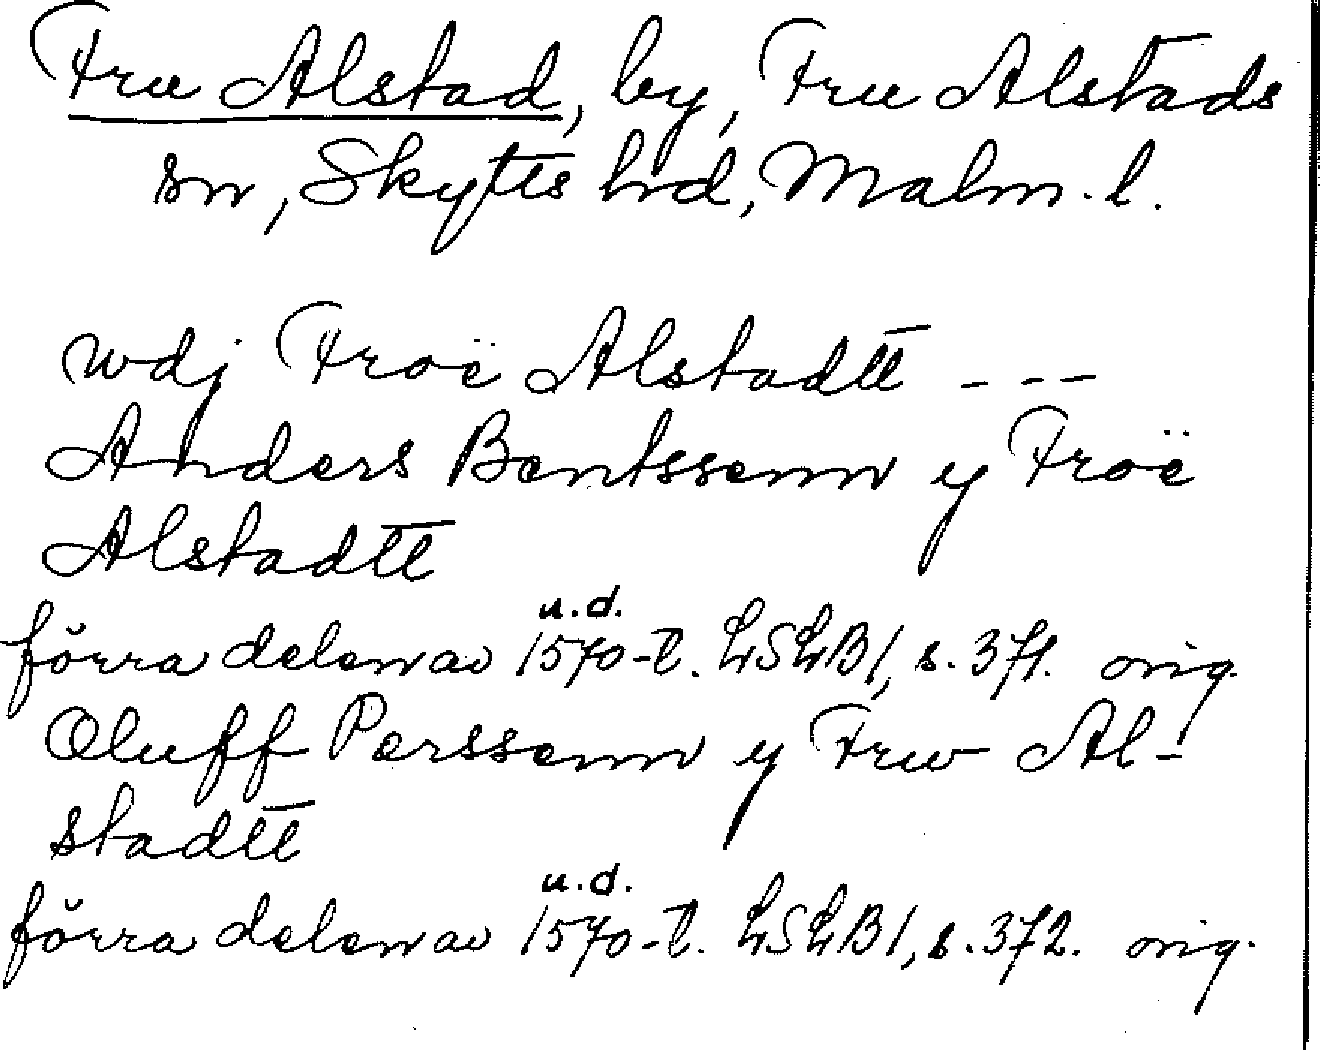 Fru Alstad, by, Fru Alstads
sn, Skytts hd, Malm. l.
wdj Froë Alstadtt - - -
Anders Bentssenn y Froë
Alstadtt
u.d.
förra delen av 1570-t. LSLB1, s. 371. orig.
Oluff Perssenn y Frw Al-
stadtt
u.d.
förra delen av 1570-t. LSLB1, s. 372. orig.